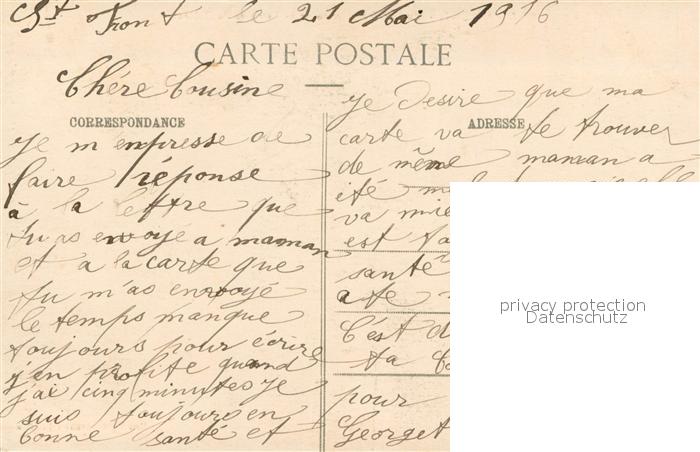 St Front le 21 Mai 1916
CARTE POSTALE
Chére Cousine
CORRESPONDANCE
Je m enpresse de
faire réponse
à la lettre que
tu as envoyé a maman
et a la carte que
tu m'as envoyé
le temps manque
toujours pour écrire
j'en profite quand
j'ai cinq minutes je
suis toujours en
bonne santé et
je desire que ma
ADRESSE
carte va te trouver
de même maman a
ité
va mie
est
santé
a te
C'est d
ta
pour
Georget
privacy protection
Datenschutz